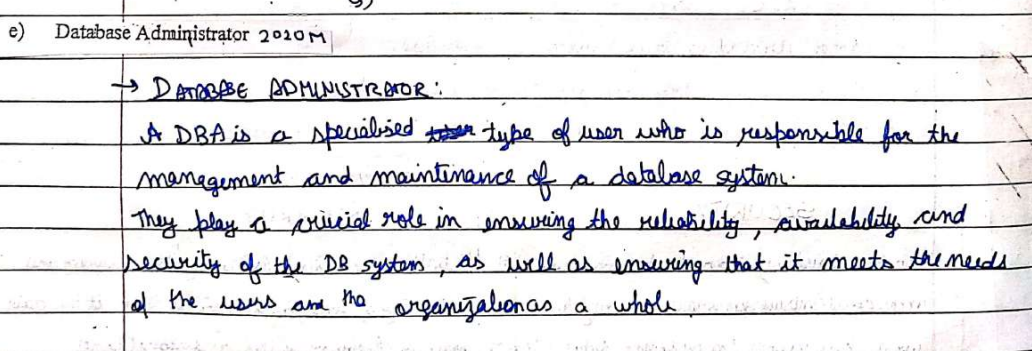 e) Database Administrator 2020M
→ DATABASE ADMINISTRATOR:
A DBA is a specialised type of user who is responsible for the
management and maintenance of a database system.
They play a crucial role in ensuring the reliability, availability and
security of the DB system, as well as ensuring that it meets the needs
of the users and the organization as a whole.